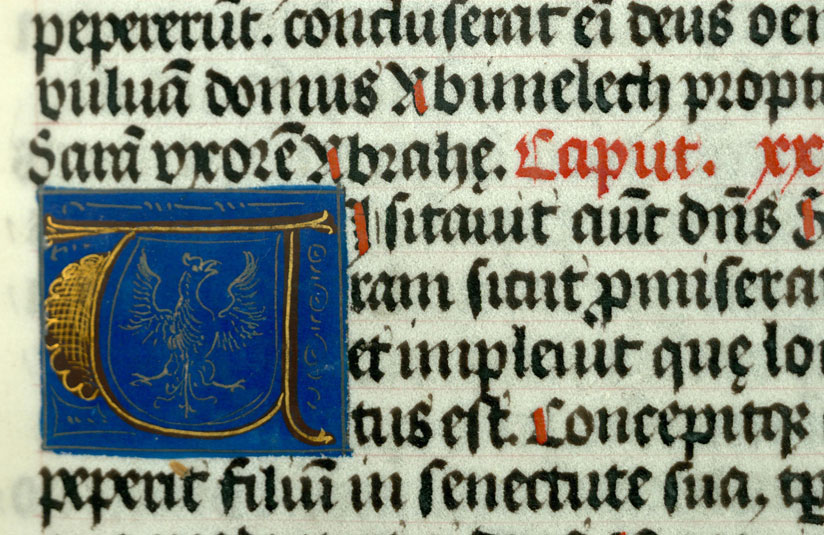 pepererūt. concluserat em̄ deus
vuluā domus Abimelech propt
Sarā vxorē Abrahę. Caput. xx
VIsitauit aūt dn̄s S
ram sicut ꝓmisera
et impleuit quę lo
tus est. Concepitqꝫ
peperit filiū in senectute sua, tp̄